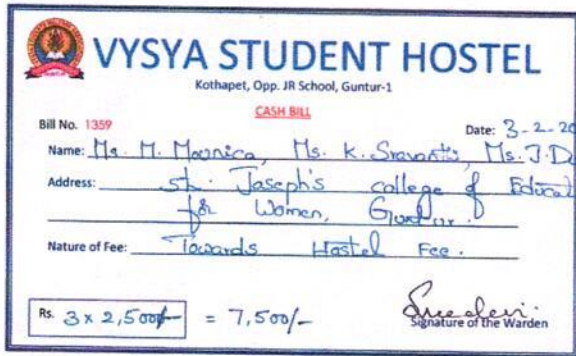 VYSYA STUDENT HOSTEL
Kothapet, Opp. JR School, Guntur-1
CASH BILL
Bill No. 1359 Date: 3-2-20
Name: Ms. M. Mounica, Ms. K. Sravanthi, Ms. J. De
Address: St. Joseph's college of Educat
for Women, Guntur.
Nature of Fee: Towards Hostel Fee.
Rs. 3 x 2,500/- = 7,500/-
Signature of the Warden